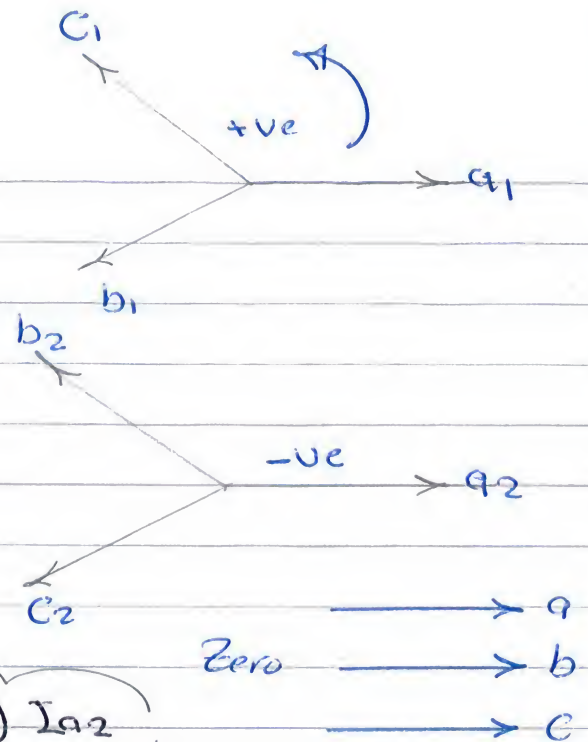 C1
+ve
a1
b1
b2
-ve
a2
C2
a
Zero
b
) Ia2
C